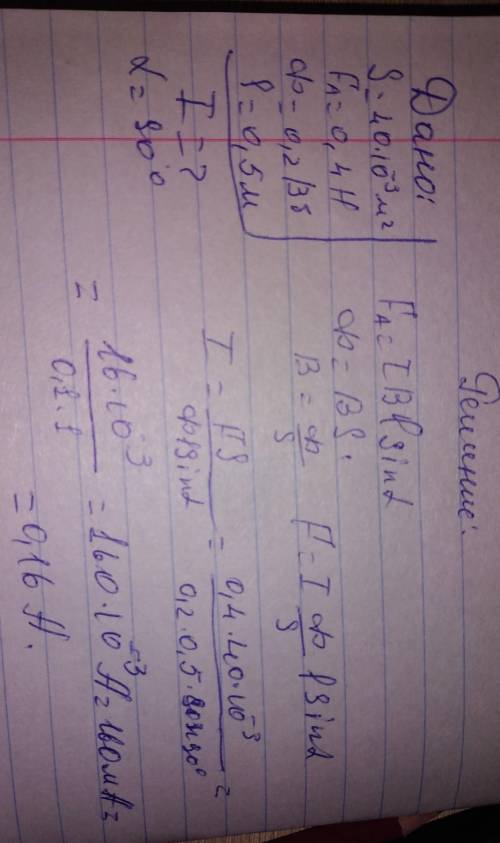 Дано:
S = 40·10⁻³ м²
Fₐ = 0,4 Н
Ф = 0,2 Вб
l = 0,5 м
I = ?
α = 90°
Решение:
Fₐ = IBl sinα
Ф = BS.
B = Ф/S F = I Ф/S l sinα
I = FS/Фl sinα = 0,4·40·10⁻³/0,2·0,5·sin90° =
= 16·10⁻³/0,1·1 = 160·10⁻³ А = 160 мА =
= 0,16 А.